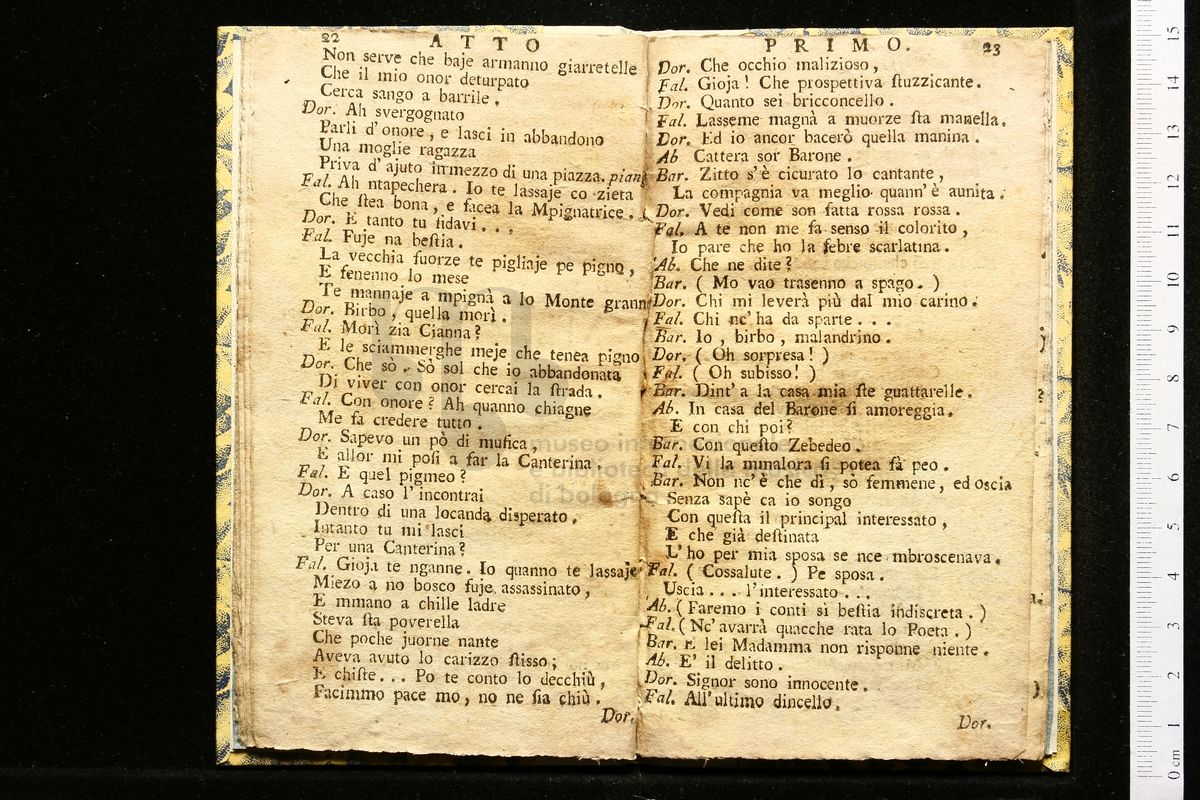 22
ATTO
Non serve che baje armanno giarretelle
Che il mio onor deturpato
Cerca sango a barrile.
Dor. Ah svergognato
Parli d'onore, e lasci in abbandono
Una moglie ragazza
Priva d'ajuto in mezzo di una piazza. piang
Fal. Ah ntapechera. Io te lassaje co zieta
Che ſtea bona, e facea la Mpignatrice.
Dor. E tanto tu fidavi...
Fal. Fuje na beſtia.
La vecchia fuorze te pigliaje pe pigno,
E fenenno lo mese
Te mannaje a mpignà a lo Monte grann
Dor. Birbo, quella morì.
Fal. Morì zia Cianna?
E le sciammerghe meje che tenea pigno
Dor. Che sò. Sò sol che io abbandonata
Di viver con onor cercai la ſtrada.
Fal. Con onore? Ah quanno chiagne
Me fa credere tutto.
Dor. Sapevo un pò di muſica,
E allor mi poſi a far la Canterina.
Fal. E quel pigmeo?
Dor. A caso l'incontrai
Dentro di una locanda disperato.
Intanto tu mi lasci
Per una Canterina?
Fal. Gioja te nganne. Io quanno te lassaje
Miezo a no bosco fuje assassinato,
E mmano a chille ladre
Steva ſta poverella
Che poche juorne nante
Aveva avuto lo carizzo ſtisso;
E chiſte... Po te conto lo decchiù,
Facimmo pace mo, no ne ſia chiù.
Dor.
PRIMO.
23
Dor. Che occhio malizioso,
Fal. Gioja! Che prospettiva ſtuzzicante.
Dor. Quanto sei bricconcello.
Fal. Lasseme magnà a muorze ſta manella.
Dor. Ed io ancor bacerò quella manina.
Ab Cattera sor Barone.
Bar. Zitto s'è cicurato lo cantante,
La compagnia va meglio quann'è aunita.
Dor. Vedi come son fatta rossa rossa.
Fal. A te non me fa senso il colorito,
Io pare che ho la febre scarlatina.
Ab. Che ne dite?
Bar. ( Mo vao trasenno a spago. )
Dor. Chi mi leverà più dal mio carino.
Fal. Chi nc'ha da sparte...
Bar. Io, birbo, malandrino.
Dor. ( Oh sorpresa! )
Fal. ( Oh subisso! )
Bar. Dint'a la casa mia ſte guattarelle.
Ab. In casa del Barone ſi amoreggia.
E con chi poi?
Bar. Con queſto Zebedeo.
Fal. Vi la mmalora ſi potea fà peo.
Bar. Non nc'è che dì, sò femmene, ed oscia
Senza sapè ca io songo
Con queſta il principal interessato,
E che già deſtinata
L'ho per mia sposa se nce mbroscenava.
Fal. ( Cossalute. ) Pe sposa.
Uscia... l'interessato...
Ab. ( Faremo i conti si beſtia indiscreta. )
Fal. ( Nc'avarrà quacche rata lo Poeta. )
Bar. E lei Madamma non risponne niente.
Ab. E' il delitto.
Dor. Signor sono innocente.
Fal. All'ultimo dincello.
Dor.
museo
di bologna
0 cm 1 2 3 4 5 6 7 8 9 10 11 12 13 14 15